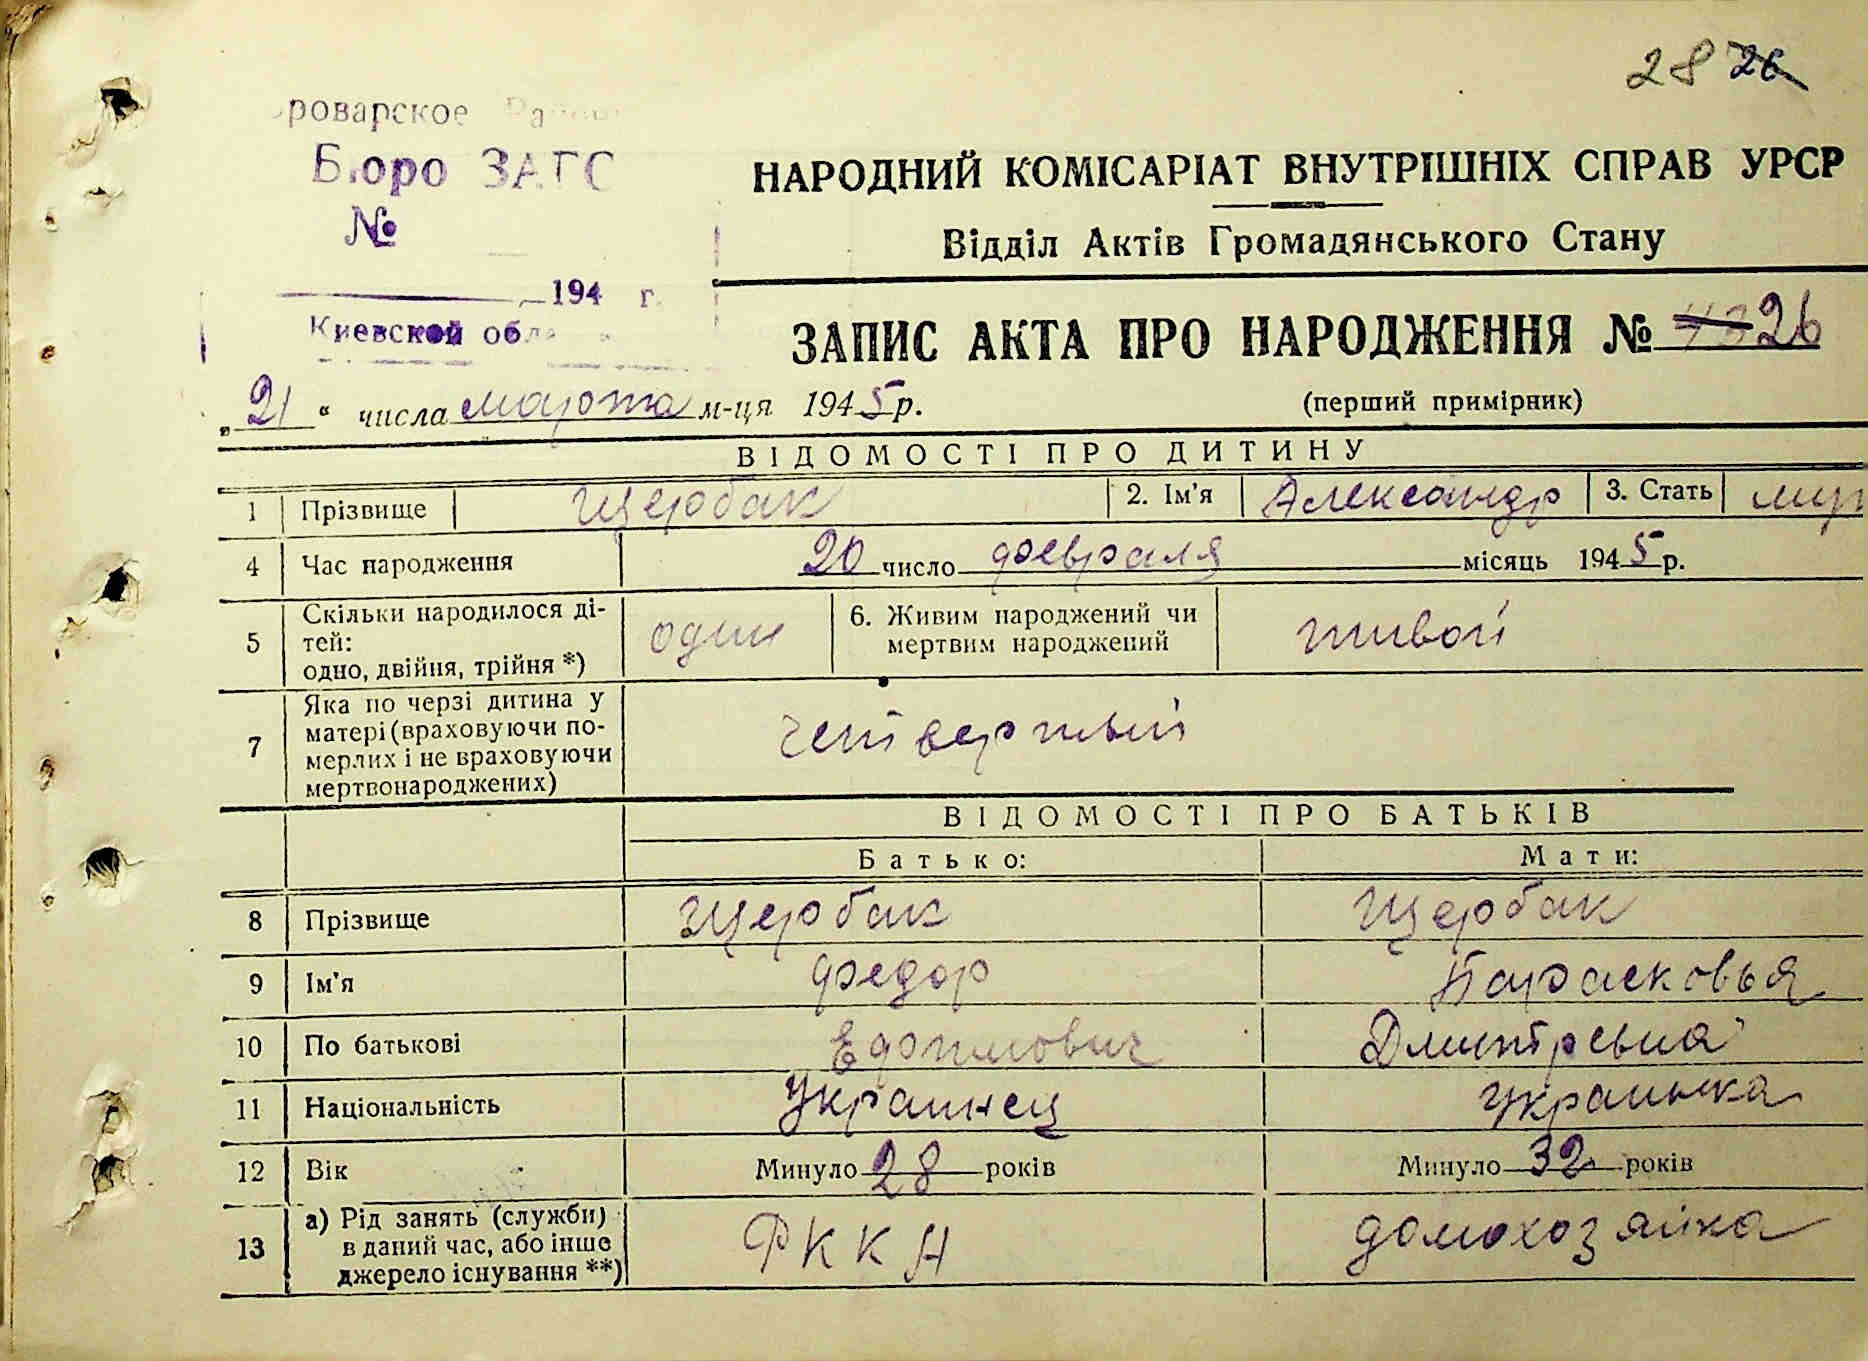 28 26
Броварское Район
Бюро ЗАГС
НАРОДНИЙ КОМІСАРІАТ ВНУТРІШНІХ СПРАВ УРСР
№
Відділ Актів Громадянського Стану
194 г.
Киевской обл
ЗАПИС АКТА ПРО НАРОДЖЕННЯ № 26
„21“ числа марта м-ця 1945 р.
(перший примірник)
ВІДОМОСТІ ПРО ДИТИНУ
1 Прізвище Щербак 2. Ім'я Александр 3. Стать муж
4 Час народження 20 число февраля місяць 1945 р.
5 Скільки народилося ді-
тей:
одно, двійня, трійня *) один 6. Живим народжений чи
мертвим народжений живой
7 Яка по черзі дитина у
матері (враховуючи по-
мерлих і не враховуючи
мертвонароджених) четвертый
ВІДОМОСТІ ПРО БАТЬКІВ
Батько: Мати:
8 Прізвище Щербак Щербак
9 Ім'я Федор Парасковья
10 По батькові Дмитревна
11 Національність Украинец Украинка
12 Вік Минуло 28 років Минуло 32 років
13 а) Рід занять (служби)
в даний час, або інше
джерело існування **) РККА домохозяйка